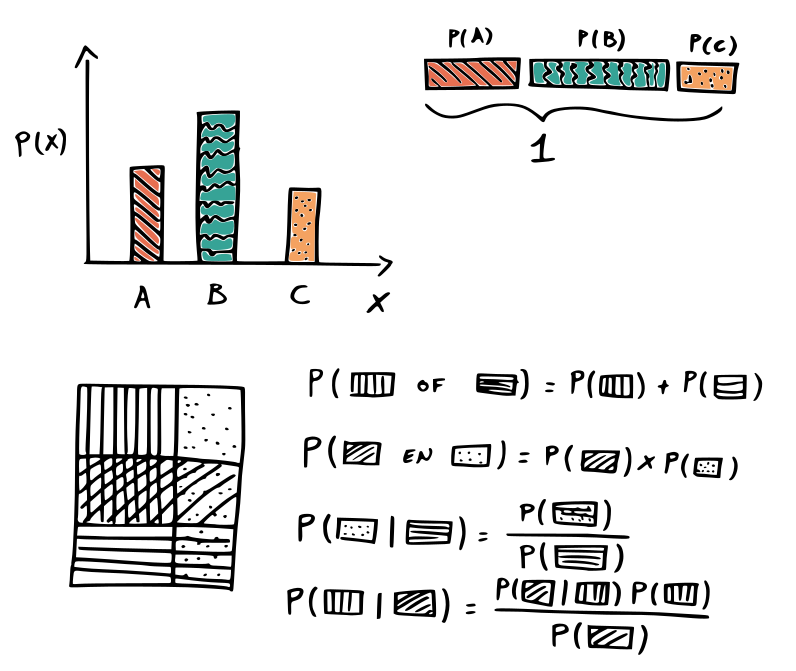 P(X)
A B C X
P(A) P(B) P(C)
1
P( OF ) = P( ) + P( )
P( EN ) = P( ) X P( )
P( | ) = P( ) / P( )
P( | ) = P( | ) P( ) / P( )